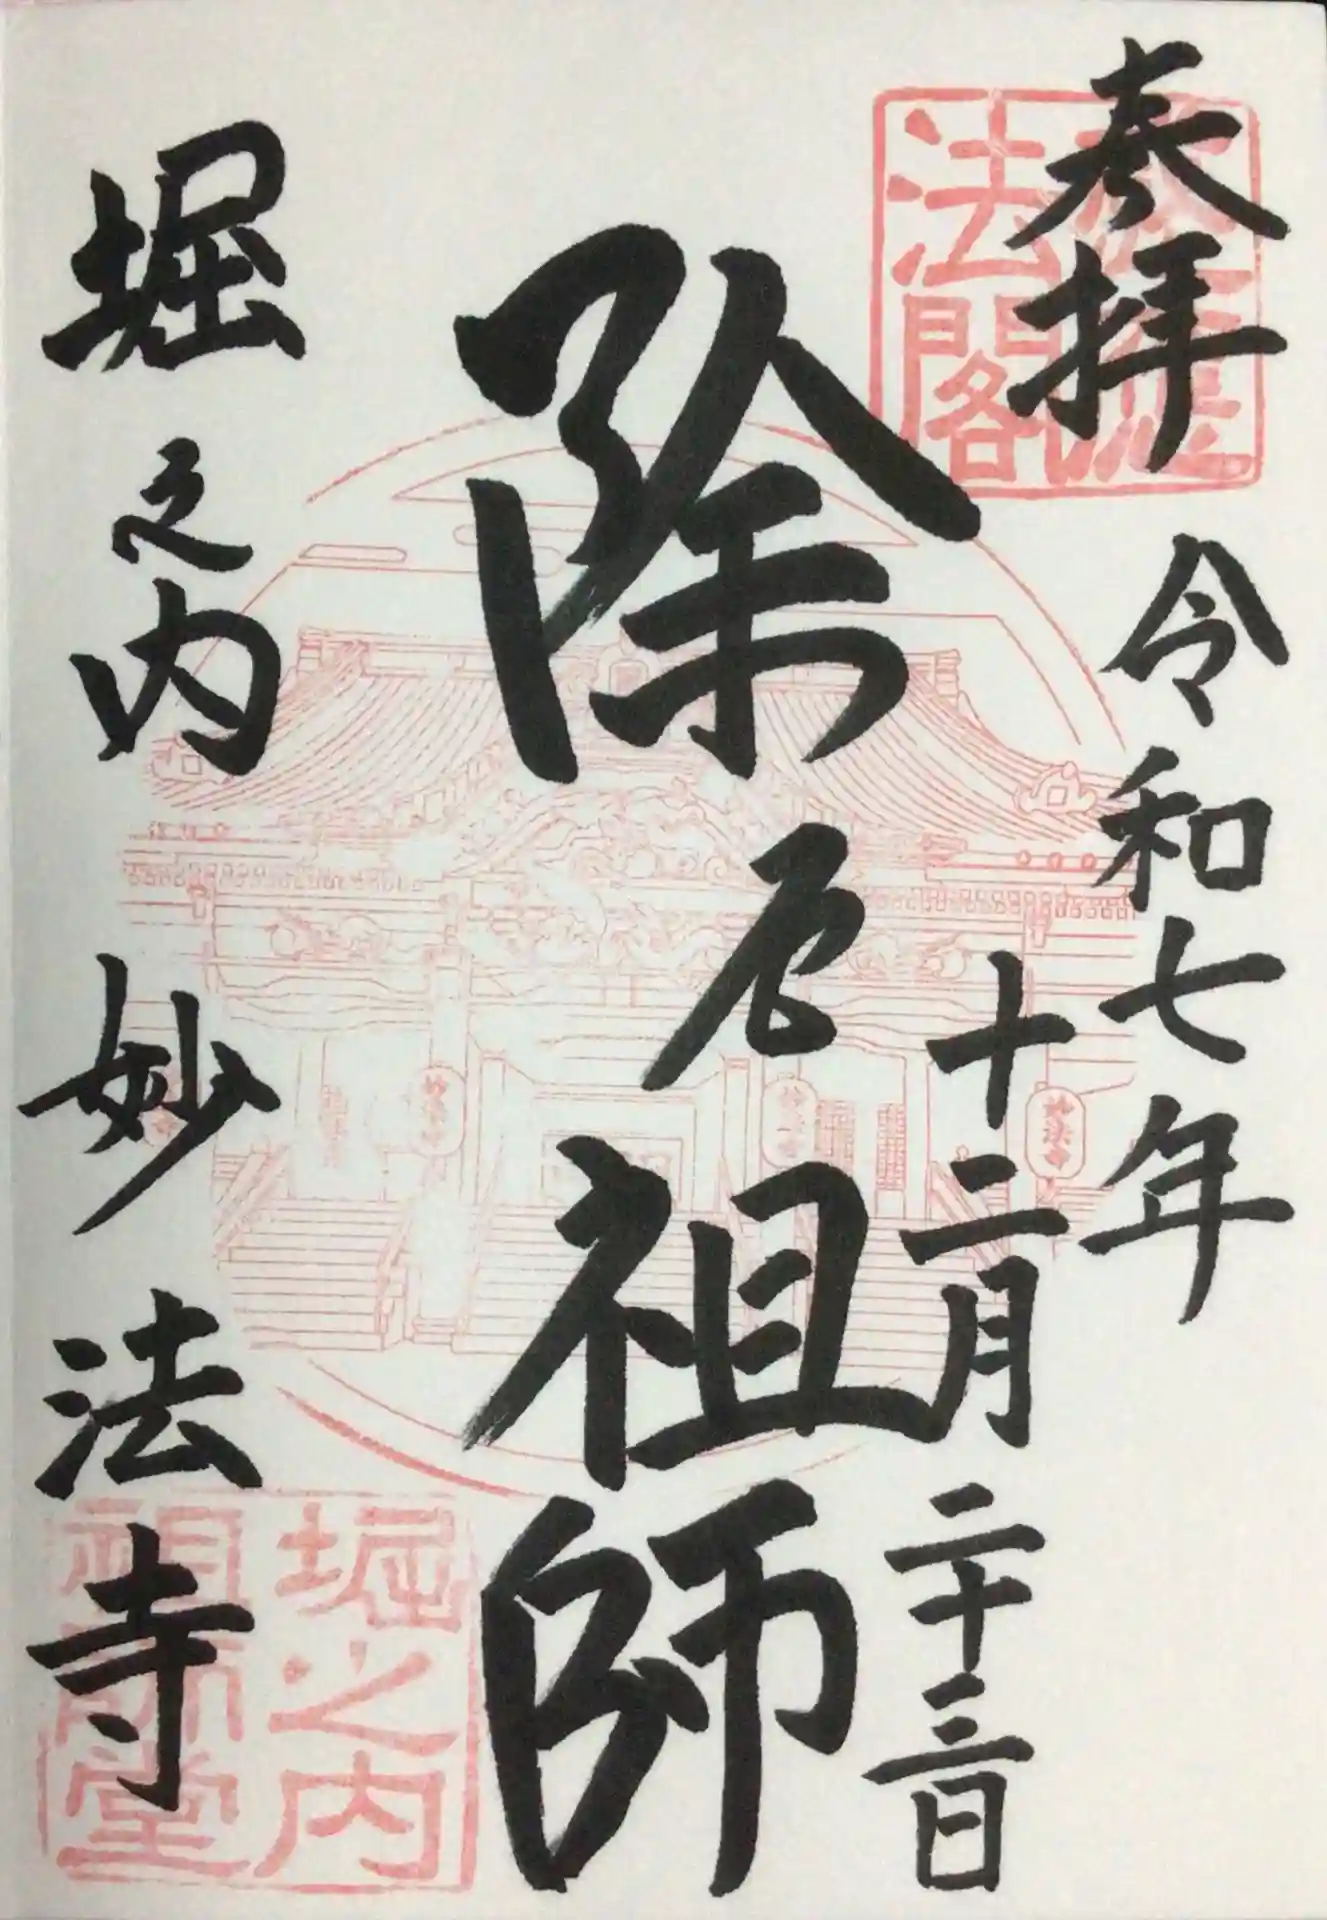 奉拝
令和七年
十二月二十三日
除厄祖師
堀之内 妙法寺
法閣
堀之内
祖師堂
妙法寺